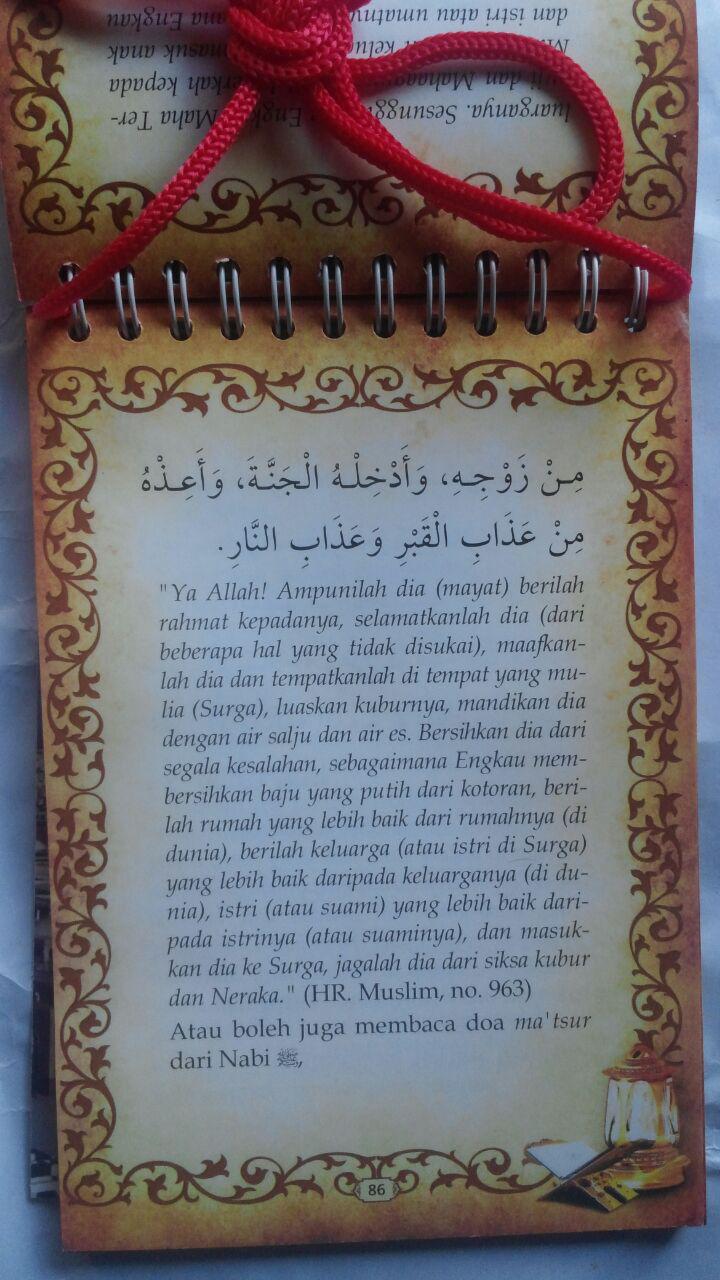 luarganya. Sesunggu Engk Maha Ter-
dan Maha erkah kepada
kelu masuk anak
dan istri atau umatn ana Engkau
مِنْ زَوْجِهِ، وَأَدْخِلْهُ الْجَنَّةَ، وَأَعِذْهُ
مِنْ عَذَابِ الْقَبْرِ وَعَذَابِ النَّارِ.
"Ya Allah! Ampunilah dia (mayat) berilah
rahmat kepadanya, selamatkanlah dia (dari
beberapa hal yang tidak disukai), maafkan-
lah dia dan tempatkanlah di tempat yang mu-
lia (Surga), luaskan kuburnya, mandikan dia
dengan air salju dan air es. Bersihkan dia dari
segala kesalahan, sebagaimana Engkau mem-
bersihkan baju yang putih dari kotoran, beri-
lah rumah yang lebih baik dari rumahnya (di
dunia), berilah keluarga (atau istri di Surga)
yang lebih baik daripada keluarganya (di du-
nia), istri (atau suami) yang lebih baik dari-
pada istrinya (atau suaminya), dan masuk-
kan dia ke Surga, jagalah dia dari siksa kubur
dan Neraka." (HR. Muslim, no. 963)
Atau boleh juga membaca doa ma'tsur
dari Nabi ﷺ,
86